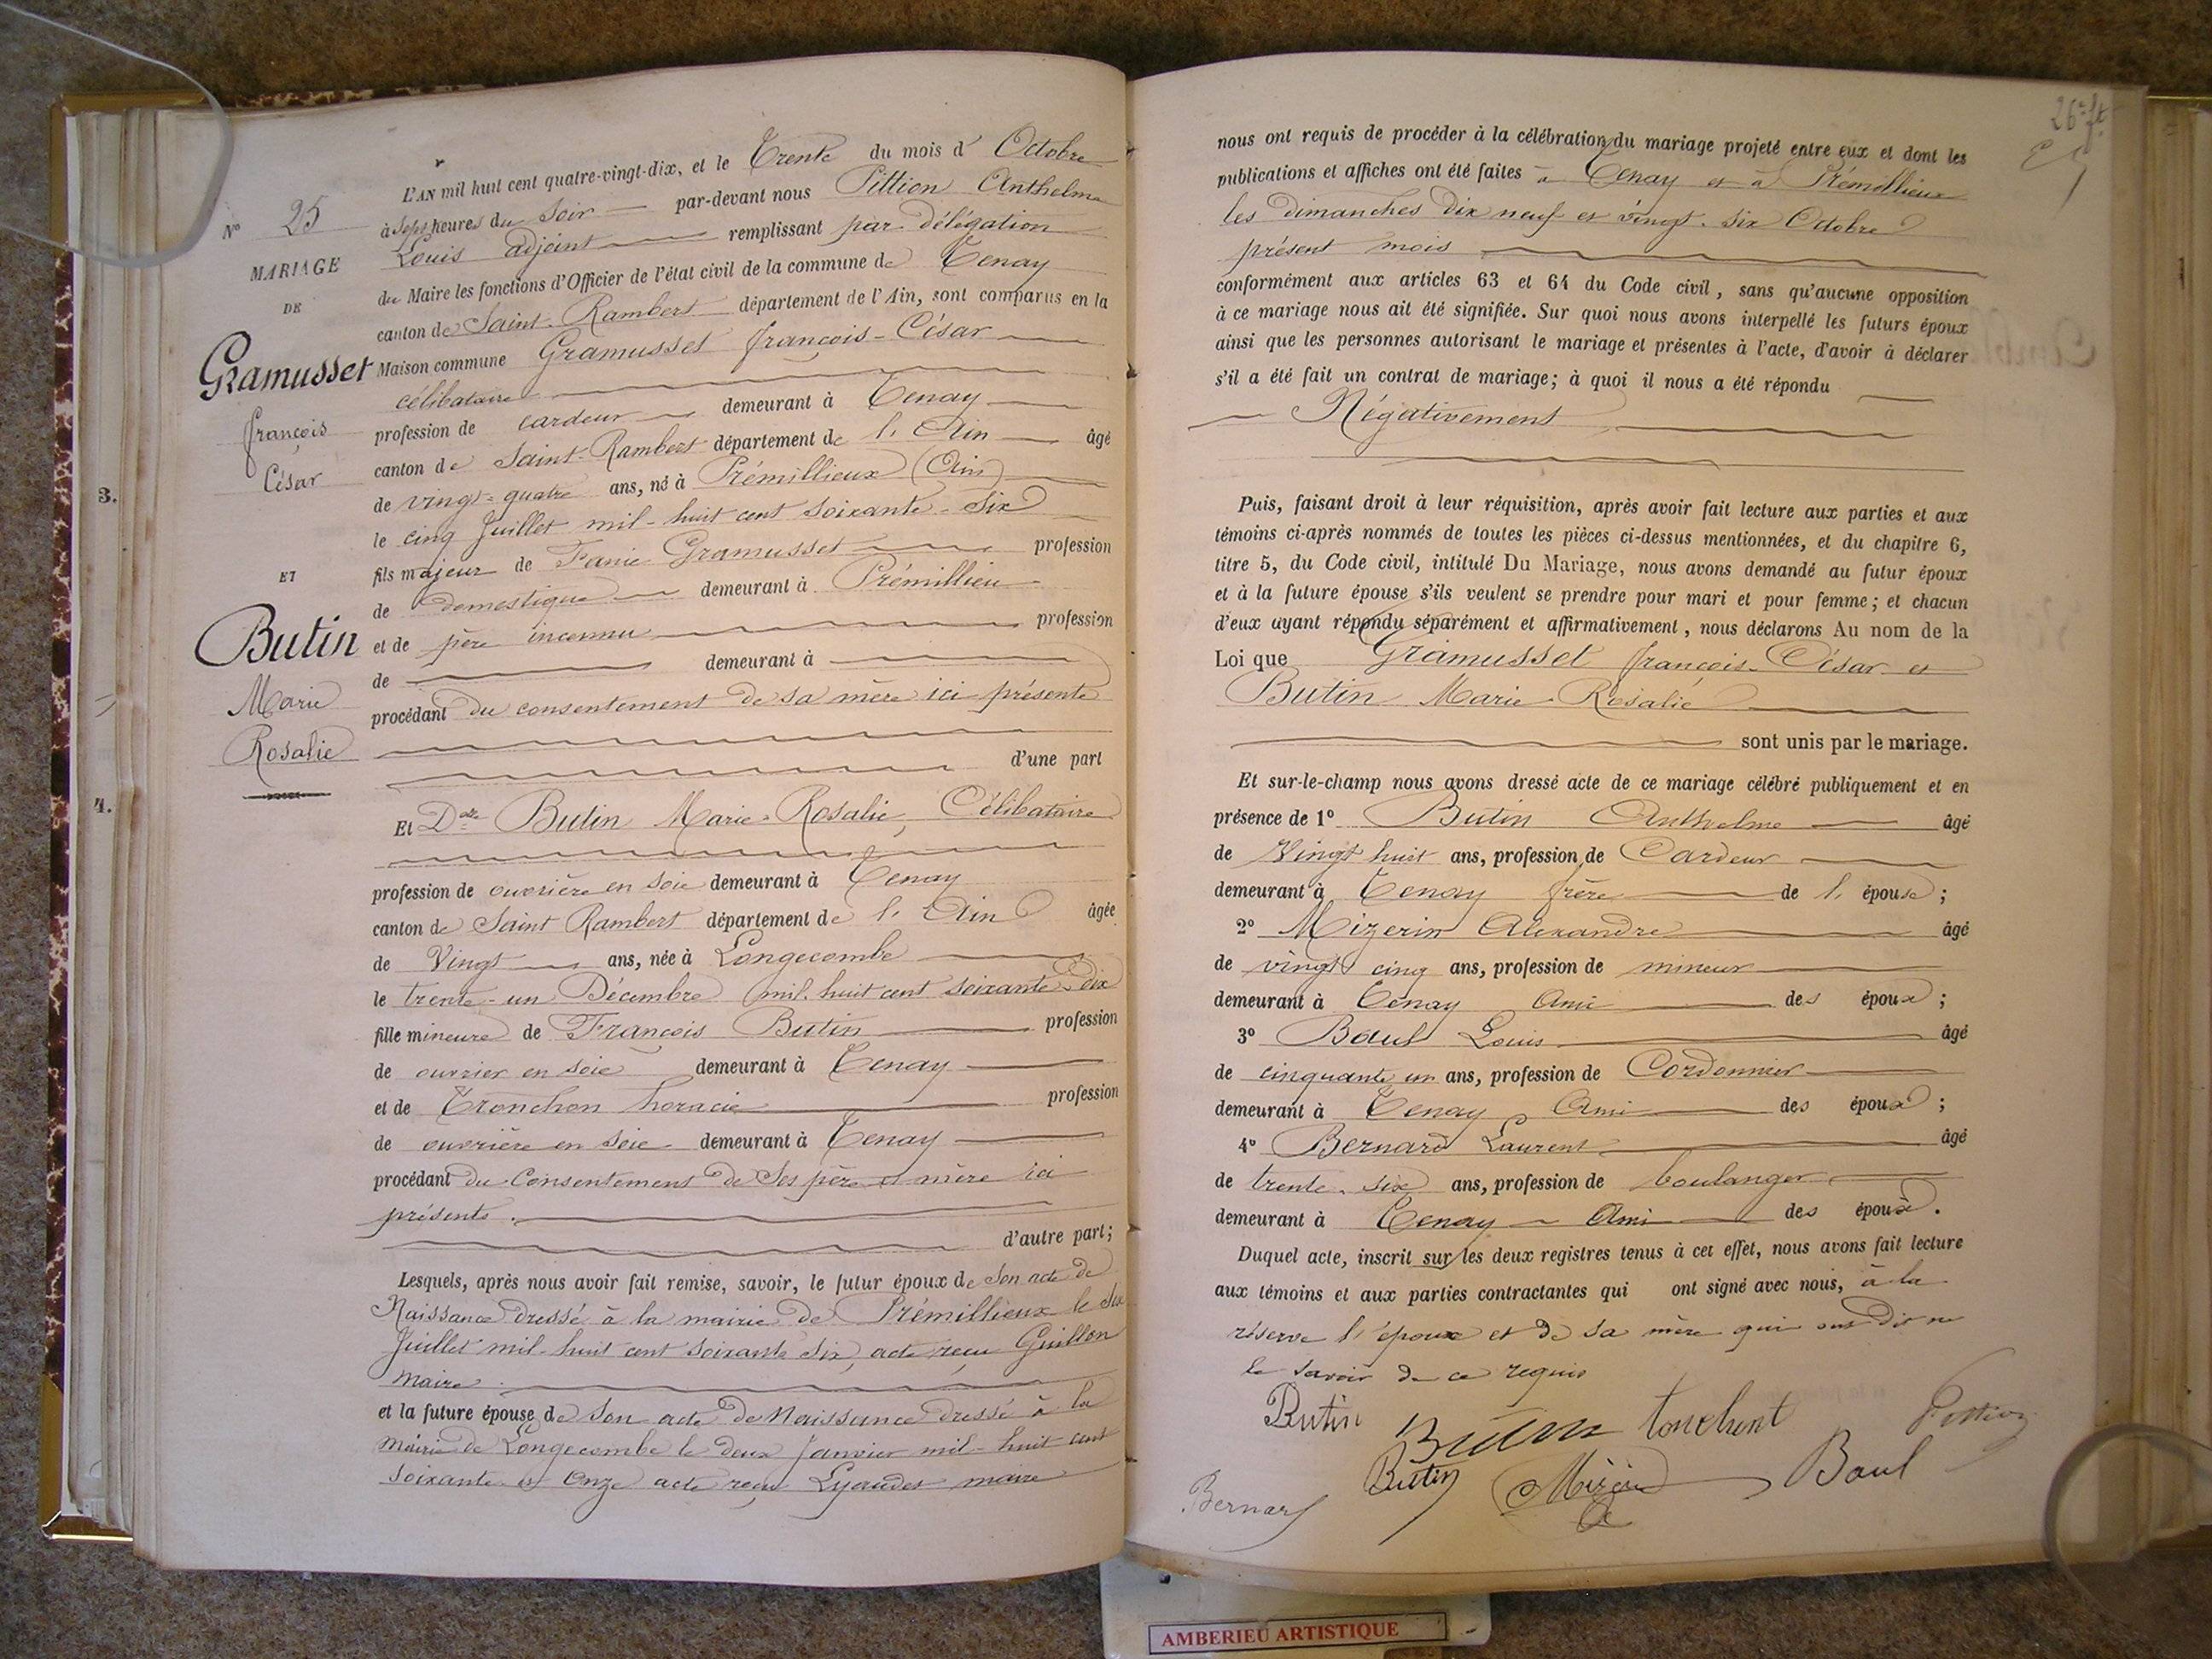 N° 25
MARIAGE
DE
Gramusset
François
César
ET
Butin
Marie
Rosalie
3.
4.
L'AN mil huit cent quatre-vingt-dix, et le Trente du mois d' Octobre
à Sept heures du Soir par-devant nous Pittion Anthelme
Louis adjoint remplissant par délégation
du Maire les fonctions d'Officier de l'état civil de la commune de Tenay
canton de Saint-Rambert département de l'Ain, sont comparus en la
Maison commune Gramusset François-César
célibataire
profession de cardeur demeurant à Tenay
canton de Saint-Rambert département de l'Ain âgé
de vingt-quatre ans, né à Prémillieux (Ain)
le cinq Juillet mil-huit cent soixante-Six
fils majeur de Fanie Gramusset profession
de domestique demeurant à Prémillieu
et de père inconnu profession
de demeurant à
procédant du consentement de sa mère ici présente
d'une part
Et Dlle Butin Marie-Rosalie, Célibataire
profession de ouvrière en soie demeurant à Tenay
canton de Saint Rambert département de l'Ain âgée
de Vingt ans, née à Longecombe
le trente-un Décembre mil-huit cent soixante-dix
fille mineure de François Butin profession
de ouvrier en soie demeurant à Tenay
et de Tronchon horacie profession
de ouvrière en soie demeurant à Tenay
procédant du Consentement de Ses père et mère ici
présents.
d'autre part;
Lesquels, après nous avoir fait remise, savoir, le futur époux de Son acte de
Naissance dressé à la mairie de Prémillieux le Six
Juillet mil-huit cent soixante Six, acte reçu Guillon
Maire
et la future épouse de Son acte de Naissance dressé à la
Mairie de Longecombe le deux Janvier mil-huit cent
soixante et Onze acte reçu Lyaudet maire
26e ft
nous ont requis de procéder à la célébration du mariage projeté entre eux et dont les
publications et affiches ont été faites à Tenay et à Prémillieux
les dimanches Dix neuf et vingt-six Octobre
présent mois
conformément aux articles 63 et 64 du Code civil, sans qu'aucune opposition
à ce mariage nous ait été signifiée. Sur quoi nous avons interpellé les futurs époux
ainsi que les personnes autorisant le mariage et présentes à l'acte, d'avoir à déclarer
s'il a été fait un contrat de mariage; à quoi il nous a été répondu
Négativement
Puis, faisant droit à leur réquisition, après avoir fait lecture aux parties et aux
témoins ci-après nommés de toutes les pièces ci-dessus mentionnées, et du chapitre 6,
titre 5, du Code civil, intitulé Du Mariage, nous avons demandé au futur époux
et à la future épouse s'ils veulent se prendre pour mari et pour femme; et chacun
d'eux ayant répondu séparément et affirmativement, nous déclarons Au nom de la
Loi que Gramusset François-César et
Butin Marie-Rosalie
sont unis par le mariage.
Et sur-le-champ nous avons dressé acte de ce mariage célébré publiquement et en
présence de 1° Butin Anthelme âgé
de Vingt huit ans, profession de Cardeur
demeurant à Tenay frère de l'épouse;
2° Mizerin Alexandre âgé
de vingt cinq ans, profession de mineur
demeurant à Tenay Ami des époux;
3° Baul Louis âgé
de cinquante un ans, profession de Cordonnier
demeurant à Tenay Ami des époux;
4° Bernard Laurent âgé
de trente-six ans, profession de boulanger
demeurant à Tenay Ami des époux.
Duquel acte, inscrit sur les deux registres tenus à cet effet, nous avons fait lecture
aux témoins et aux parties contractantes qui ont signé avec nous, à la
réserve l'époux et de sa mère qui ont dit ne
le savoir de ce requis
Butin Butin tonchont Pittion
Bernard Butin Baul
AMBERIEU ARTISTIQUE